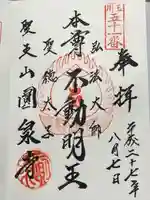 五十一番
奉拝
平成二十七年
八月七日
弘法大師
本尊不動明王
聖徳太子
聖天山圓泉寺